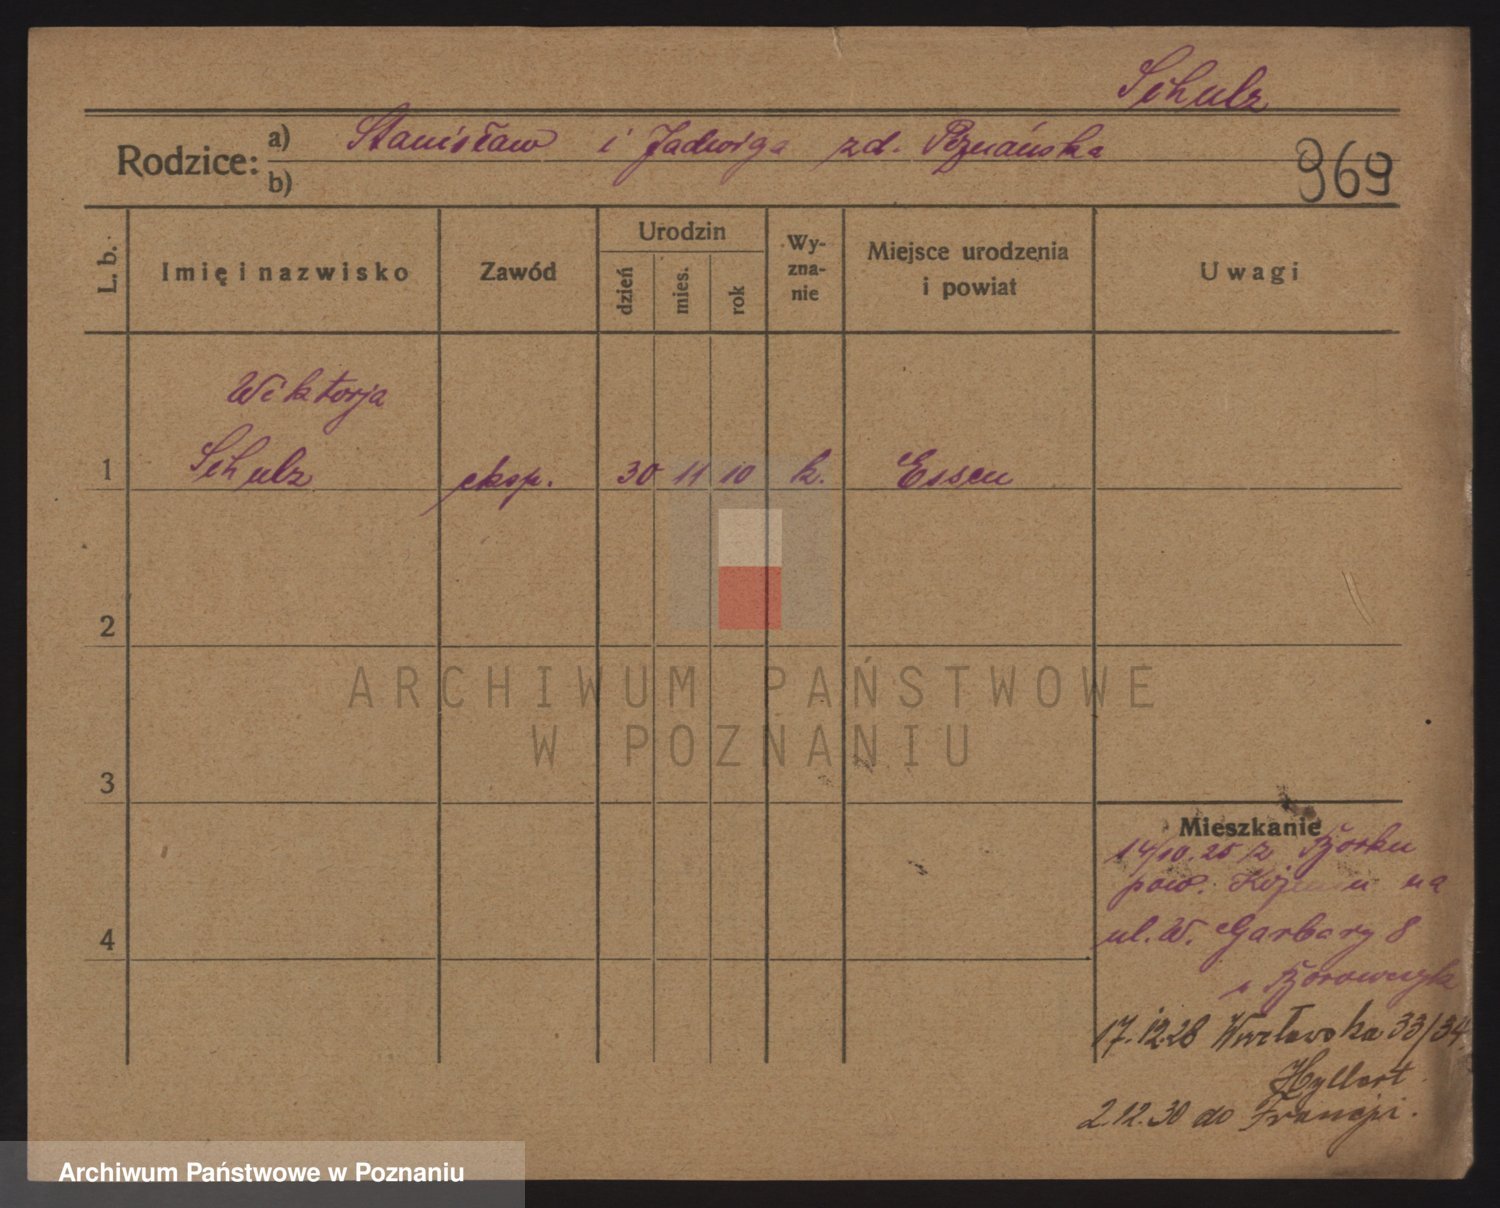 Schulz
Rodzice: a) Stanisław i Jadwiga zd. Poznańska
b)
969
L. b.
Imię i nazwisko
Zawód
Urodzin
dzień
mies.
rok
Wy-
zna-
nie
Miejsce urodzenia
i powiat
Uwagi
Wiktorja
1 Schulz eksp. 30 11 10 k. Essen
2
3
4
Mieszkanie
14/10.25 z Borku
pow. na
ul. W. Garbary 8
17.12.28 Wrocławska 33/34
2.12.30 do Francji.
ARCHIWUM PAŃSTWOWE
W POZNANIU
Archiwum Państwowe w Poznaniu